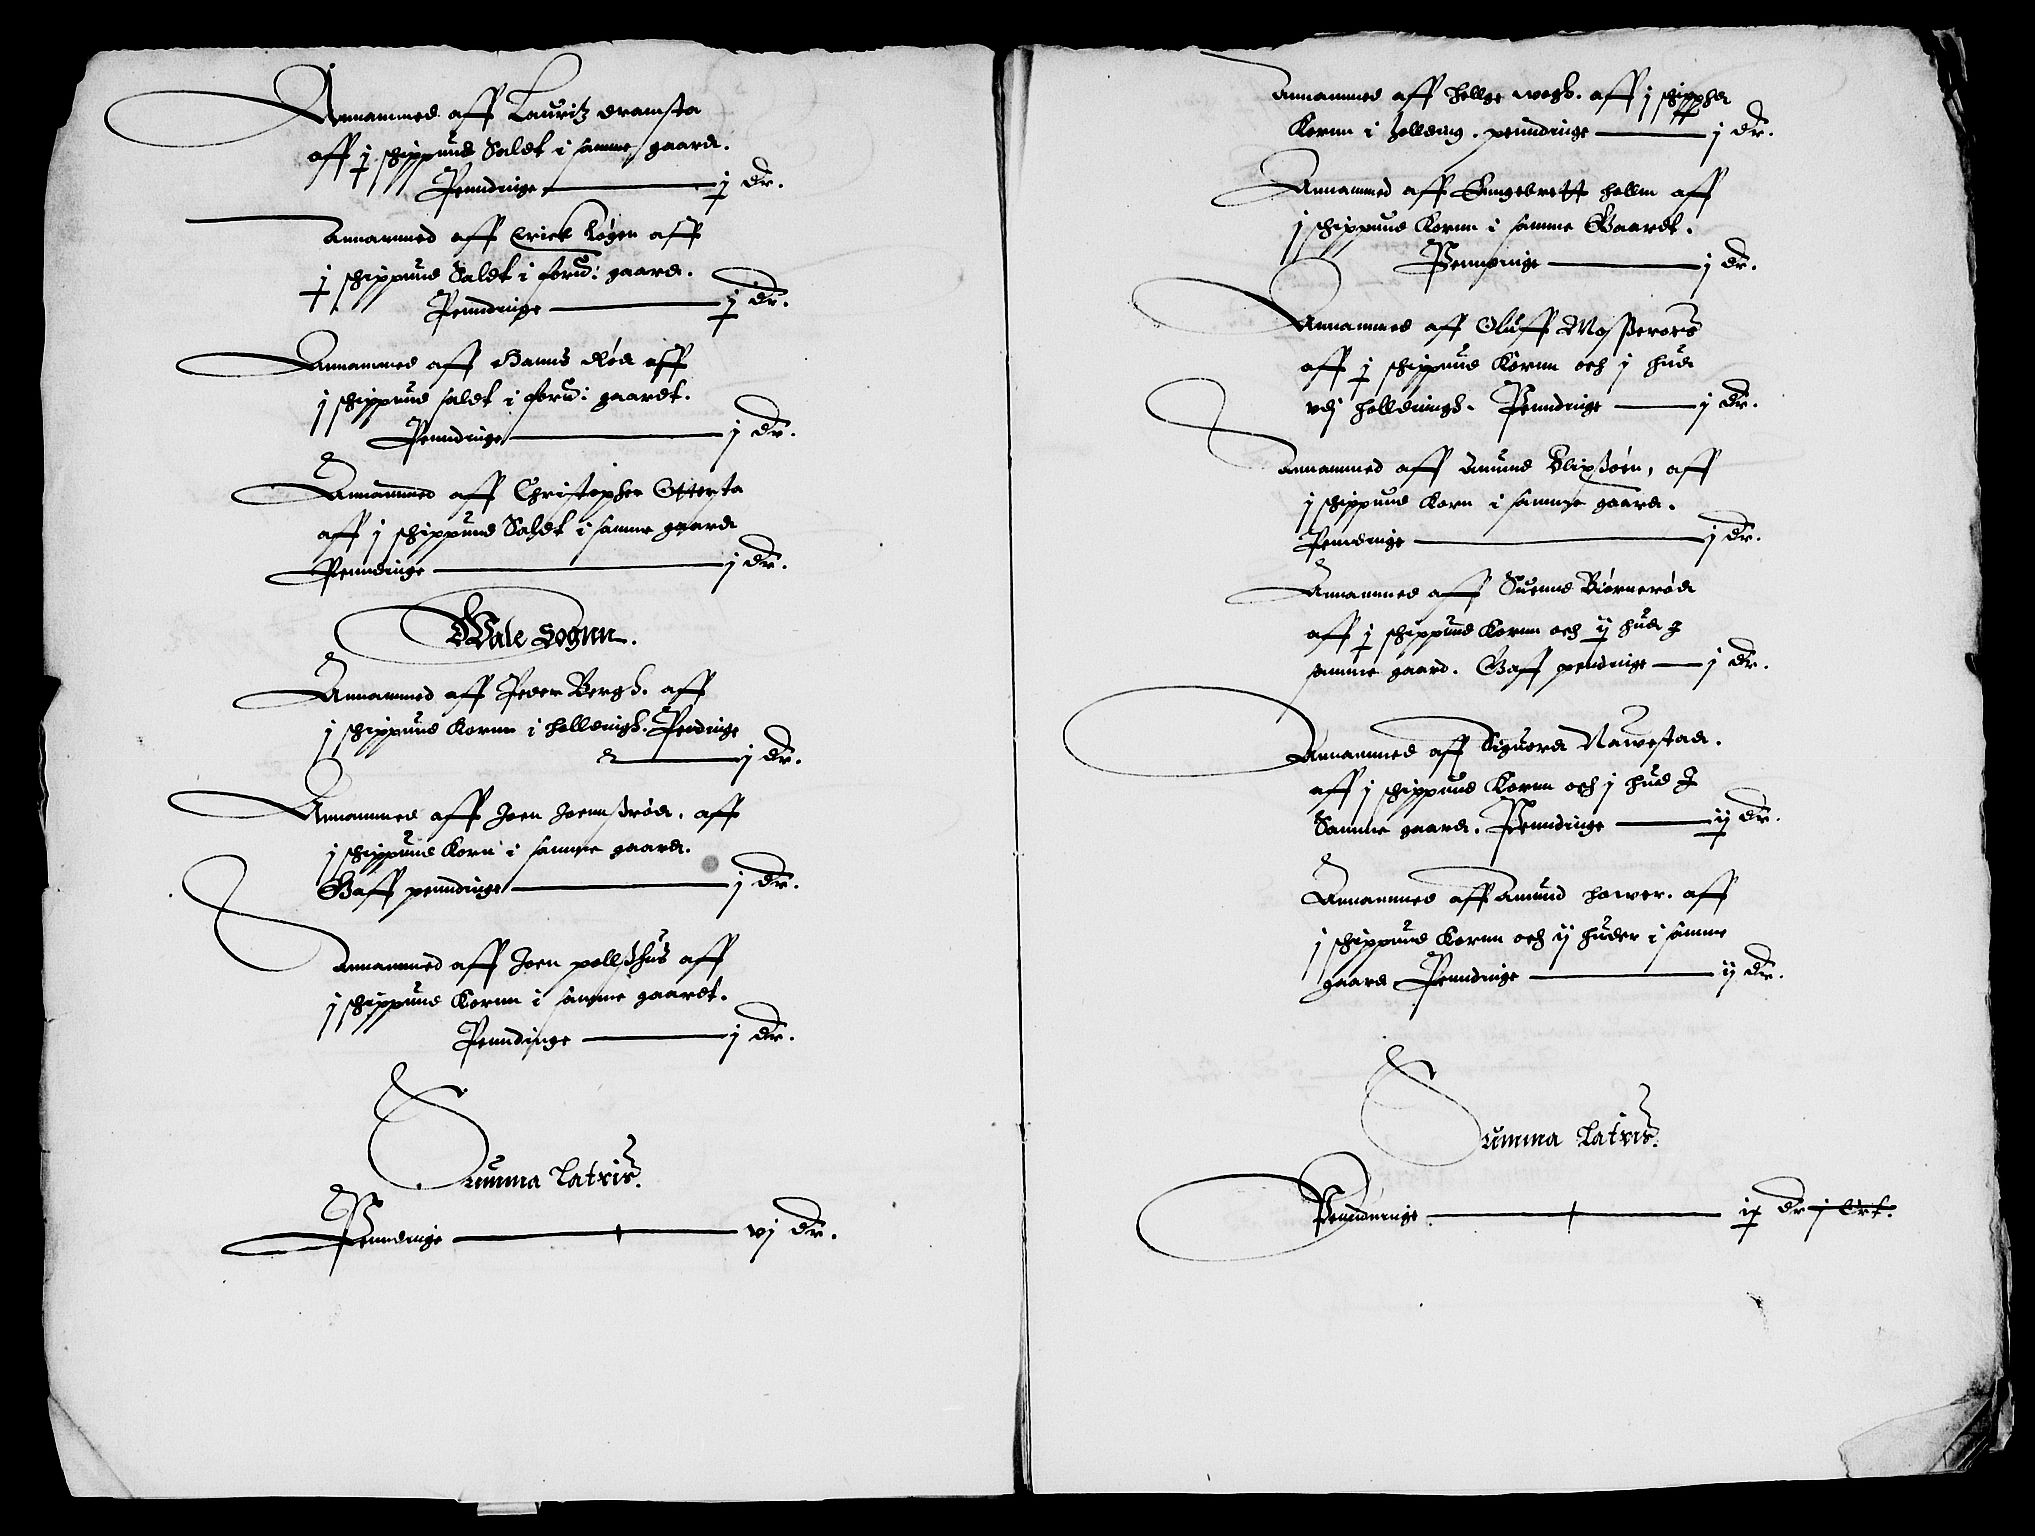 Annammed aff Lauritz dramsta
aff j schippund Saldt i samme gaard.
Penndinge j dr.
Annammed aff Erick Løgen aff
j schippund Saldt i forn: gaard.
Penndinge j dr.
Annammed aff Hanns Rød aff
j schippund saldt i forn: gaardt.
Penndinge j dr.
Annammed aff Christopher Ottersta
aff j schippund Saldt i samme gaard
Penndinge j dr.
Wale Sognn.
Annammed aff Peder Bergh. aff
j schippund Kornn i holldningh. Pendinge
j dr.
Annammed aff Joen Joennßrød. aff
j schippund Korn i samme gaard.
Gaff penndinge j dr.
Annammed aff Joen pollßhus aff
j schippund Kornn i samme gaardt.
Penndinge j dr.
Summa Lateris.
Penndinge vj dr.
Annammed aff Hellge wegh. aff j schippd
Kornn i holldning. penndinge j dr.
Annammed aff Engebrett hollm aff
j schippund Kornn i samme Gaardt.
Penndinge j dr.
Annammed aff Oluff Moßerøes
aff j schippund Kornn och j hud
vdj holldningh. Penndinge j dr.
Annammed aff Amund Slipßøen, aff
j schippund Korn i samme gaard.
Penndinge j dr.
Annammed aff Suennd Biørnerød
aff j schippund Kornn och ij hud J
samme gaard. Gaff penndinge j dr.
Annammed aff Siguord Nawestad.
aff j schippund Kornn och j hud J
Samme gaard. Penndinge ij dr.
Annammed aff Amund hower. aff
j schippund Kornn och ij huder i samme
gaard Penndinge ij dr.
Summa Lateris.
Penndninge ix dr j Ort.